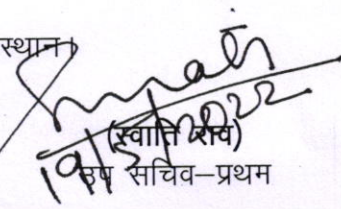 स्थान।
19/5/2022
(स्वाति राव)
उप सचिव–प्रथम